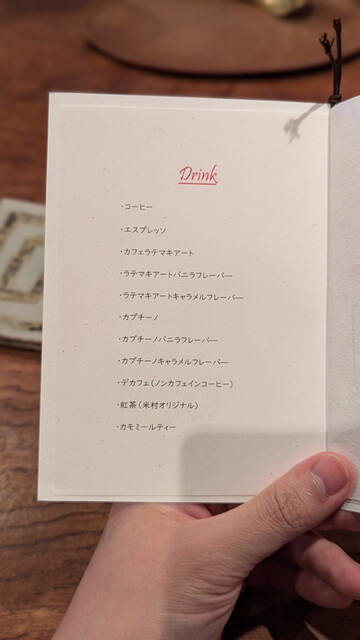 Drink
・コーヒー
・エスプレッソ
・カフェラテマキアート
・ラテマキアートバニラフレーバー
・ラテマキアートキャラメルフレーバー
・カプチーノ
・カプチーノバニラフレーバー
・カプチーノキャラメルフレーバー
・デカフェ(ノンカフェインコーヒー)
・紅茶(米村オリジナル)
・カモミールティー